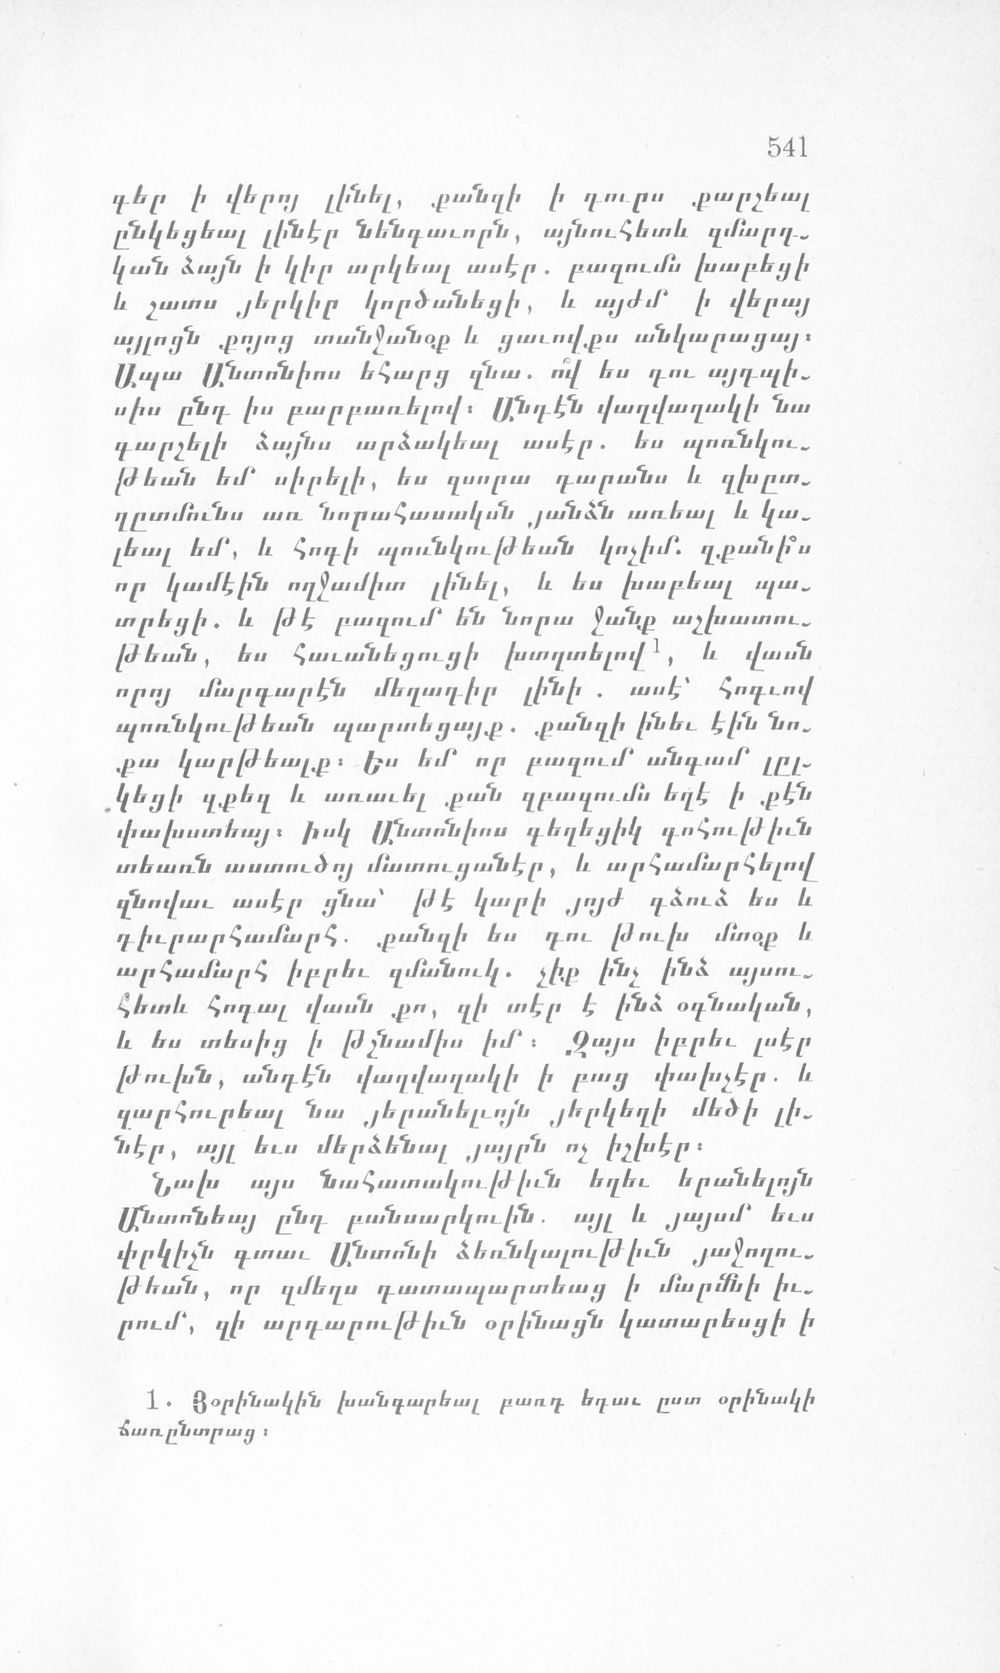 541
գեր ի վերոյ լինել, քանզի ի դուրս քարշեալ
ընկեցեալ լինէր նենգաւորն, այնուհետև զմարդ֊
կան ձայն ի կիր արկեալ ասէր. բազումս խաբեցի
և շատս յերկիր կործանեցի, և այժմ ի վերայ
այլոցն քոյոց տանջանօք և ցաւովքս անկարացայ։
Ապա Անտոնիոս եհարց զնա. ո՞վ ես դու այդպի֊
սիս ընդ իս բարբառելով։ Անդէն վաղվաղակի նա
գարշելի ձայնս արձակեալ ասէր. ես պոռնկու֊
թեան եմ սիրելի, ես զսորա դարանս և զխըտ֊
ղըտմունս առ նորահասակսն յանձն առեալ և կա֊
լեալ եմ, և հոգի պոռնկութեան կոչիմ. զքանի՞ս
որ կամէին ողջամիտ լինել, և ես խաբեալ պա֊
տրեցի. և թէ բազում են նորա ջանք աշխատու֊
թեան, ես հաւանեցուցի խտղտելով¹, և վասն
որոյ մարգարէն մեղադիր լինի. ասէ՝ հոգւով
պոռնկութեան պարտեցայք. քանզի ինեւ էին նո֊
քա կարթեալք։ Ես եմ որ բազում անգամ լըլ֊
կեցի զքեզ և առաւել քան զբազումս եղէ ի քէն
փախստեայ։ Իսկ Անտոնիոս գեղեցիկ գոհութիւն
տեառն աստուծոյ մատուցանէր, և արհամարհելով
զնովաւ ասէր ցնա՝ թէ կարի յոյժ գձուձ ես և
դիւրարհամարհ. քանզի ես դու թուխ մտօք և
արհամարհ իբրեւ զմանուկ. չիք ինչ ինձ այսու֊
հետև հոգալ վասն քո, զի տէր է ինձ օգնական,
և ես տեսից ի թշնամիս իմ։ Զայս իբրեւ լսէր
թուխն, անդէն վաղվաղակի ի բաց փախչէր. և
զարհուրեալ նա յերանելւոյն յերկեղի մեծի լի֊
նէր, այլ եւս մերձենալ յայրն ոչ իշխէր։
Նախ այս նահատակութիւն եղեւ երանելոյն
Անտոնեայ ընդ բանսարկուին. այլ և յայսմ եւս
փրկիչն գտաւ Անտոնի ձեռնկալութիւն յաջողու֊
թեան, որ զմեղս դատապարտեաց ի մարմնի իւ֊
րում, զի արդարութիւն օրինացն կատարեսցի ի
1. Յօրինակին խանգարեալ բառդ եդաւ ըստ օրինակի
ճառընտրաց։